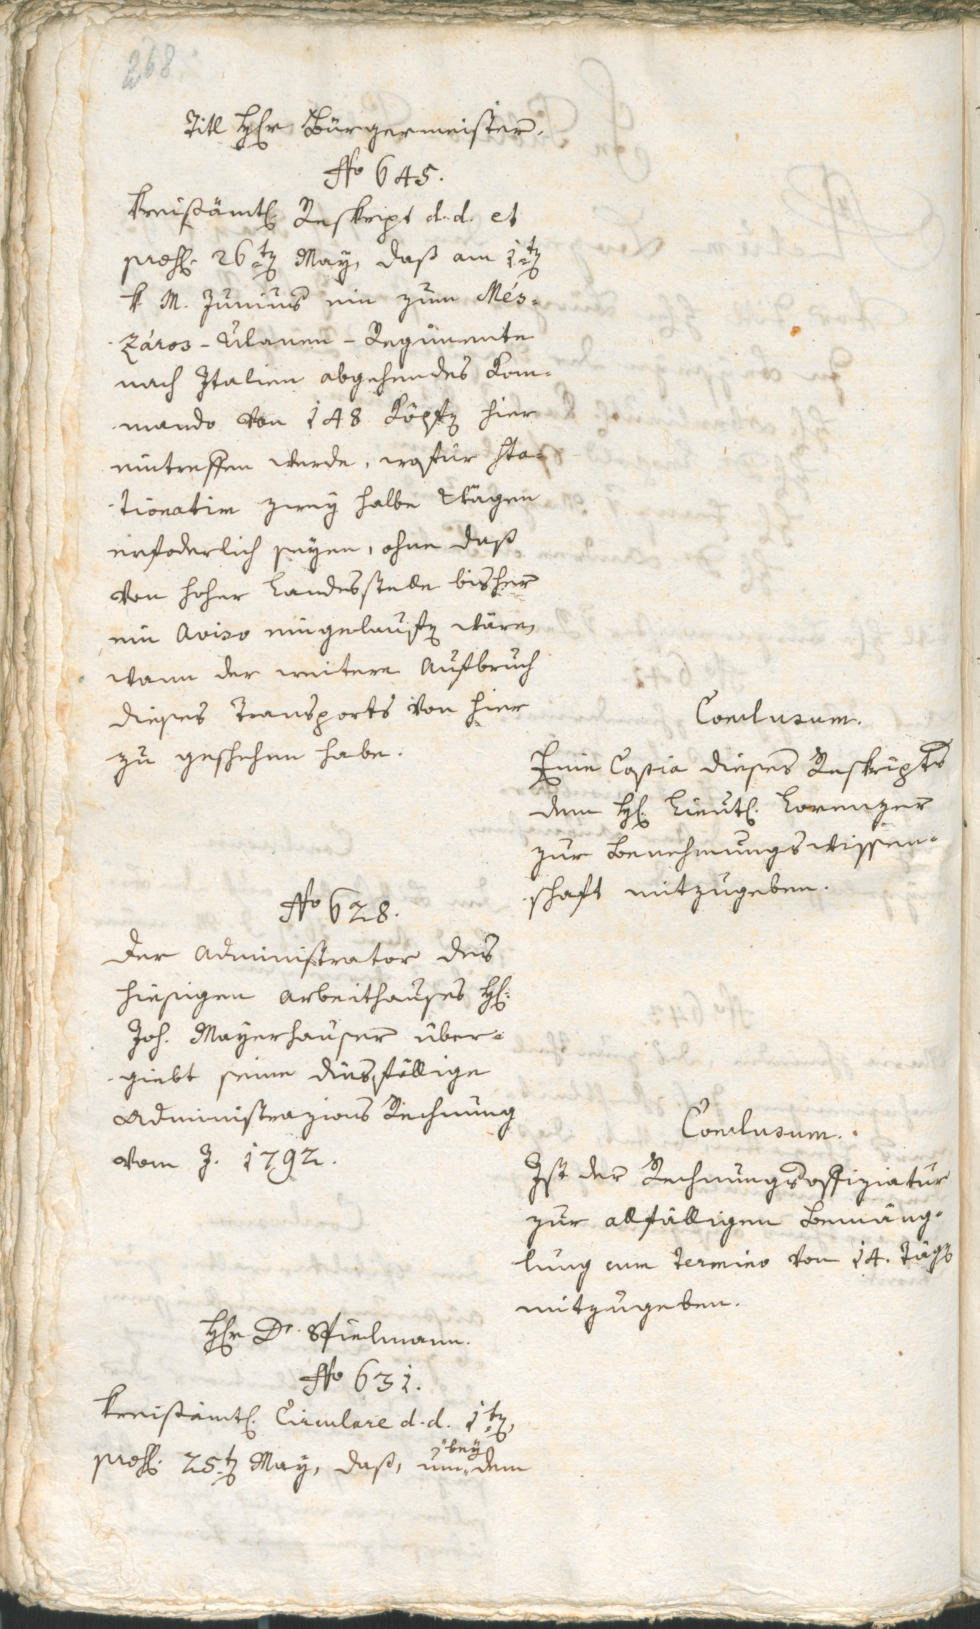 268
Titl Hhr Bürgermeister.
No 645.
Kreisämtl. Reskript d. d. et
prӕs. 26tn May, daß am 1tn
k. M. Junius ein zum Més-
záros-Ulanen-Regimente
nach Italien abgehendes Kom-
mando von 148 Köpfn hier
eintreffen werde, wofür sta-
tionatim zwey halbe Wägen
erfoderlich seyen, ohne daß
von hoher Landesstelle bisher
ein Aviso eingelaufn wäre,
wann der weitere Aufbruch
dieses Transports von hier
zu geschehen habe.
Conclusum.
Eine Copia dieses Reskripts
dem H. Lieut. Lorenzer
zur Benehmungswissen-
schaft mitzugeben.
No 628.
Der Administrator des
hiesigen Arbeithauses H.
Joh. Mayerhauser über-
giebt seine diesfällige
Administrazions Rechnung
vom J. 1792.
Conclusum.
Ist der Rechnungsoffiziatur
zur allfälligen Bemäng-
lung cum termino von 14. Täg
mitzugeben.
Hhr Dr. Spielmann.
No 631.
Kreisämtl. Circulare d. d. 1tn,
prӕs. 25tn May, daß, um bey dem